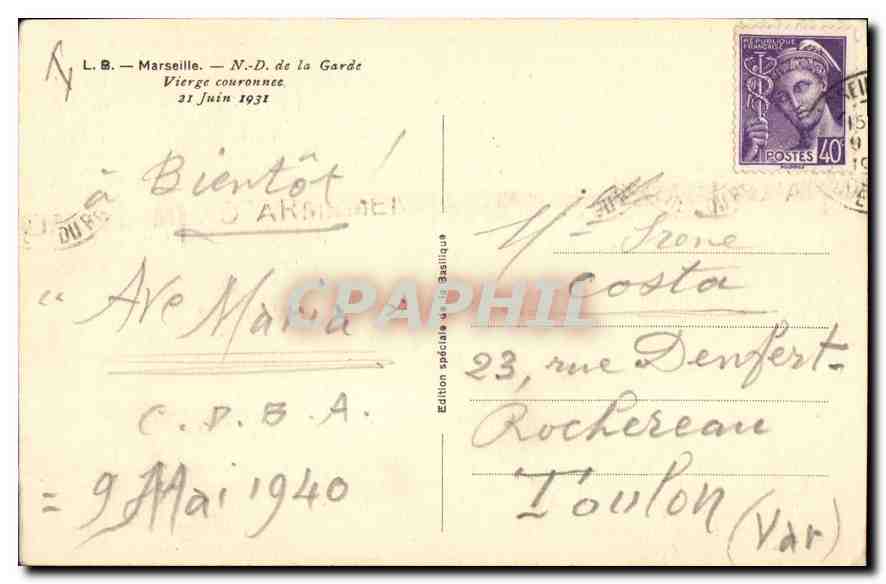 L. B. — Marseille. — N.-D. de la Garde
Vierge couronnée
21 Juin 1931
à Bientôt !
" Ave Maria "
C. D. B. A.
= 9 Mai 1940
Edition spéciale de la Basilique
RÉPUBLIQUE
FRANÇAISE
POSTES 40c
D'ARMEMEN
DU
Irène
Costa
23, rue Denfert-
Rochereau
Toulon
(Var)
CPAPHIL